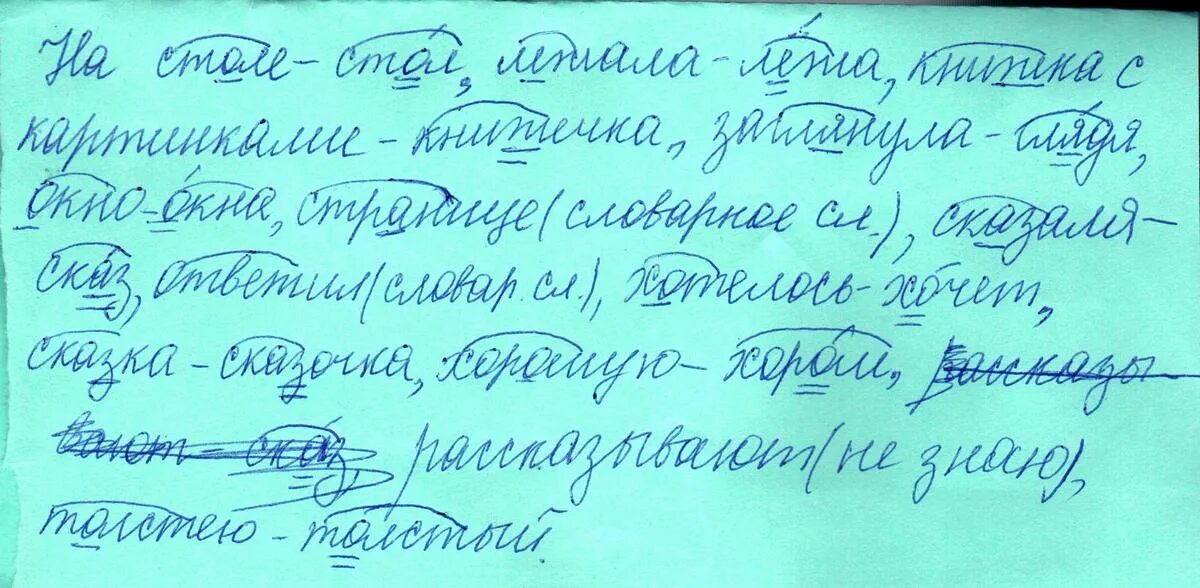 На столе – стол, лежала – лёжа, книжка с
картинками – книжечка, заглянула – глядя,
окно – окна, странице (словарное сл.), сказаля –
сказ, ответил (словар. сл.), хотелось – хочет,
сказка – сказочка, хорошую – хорош, рассказы
вают – сказ, рассказывают (не знаю),
толстею – толстый.